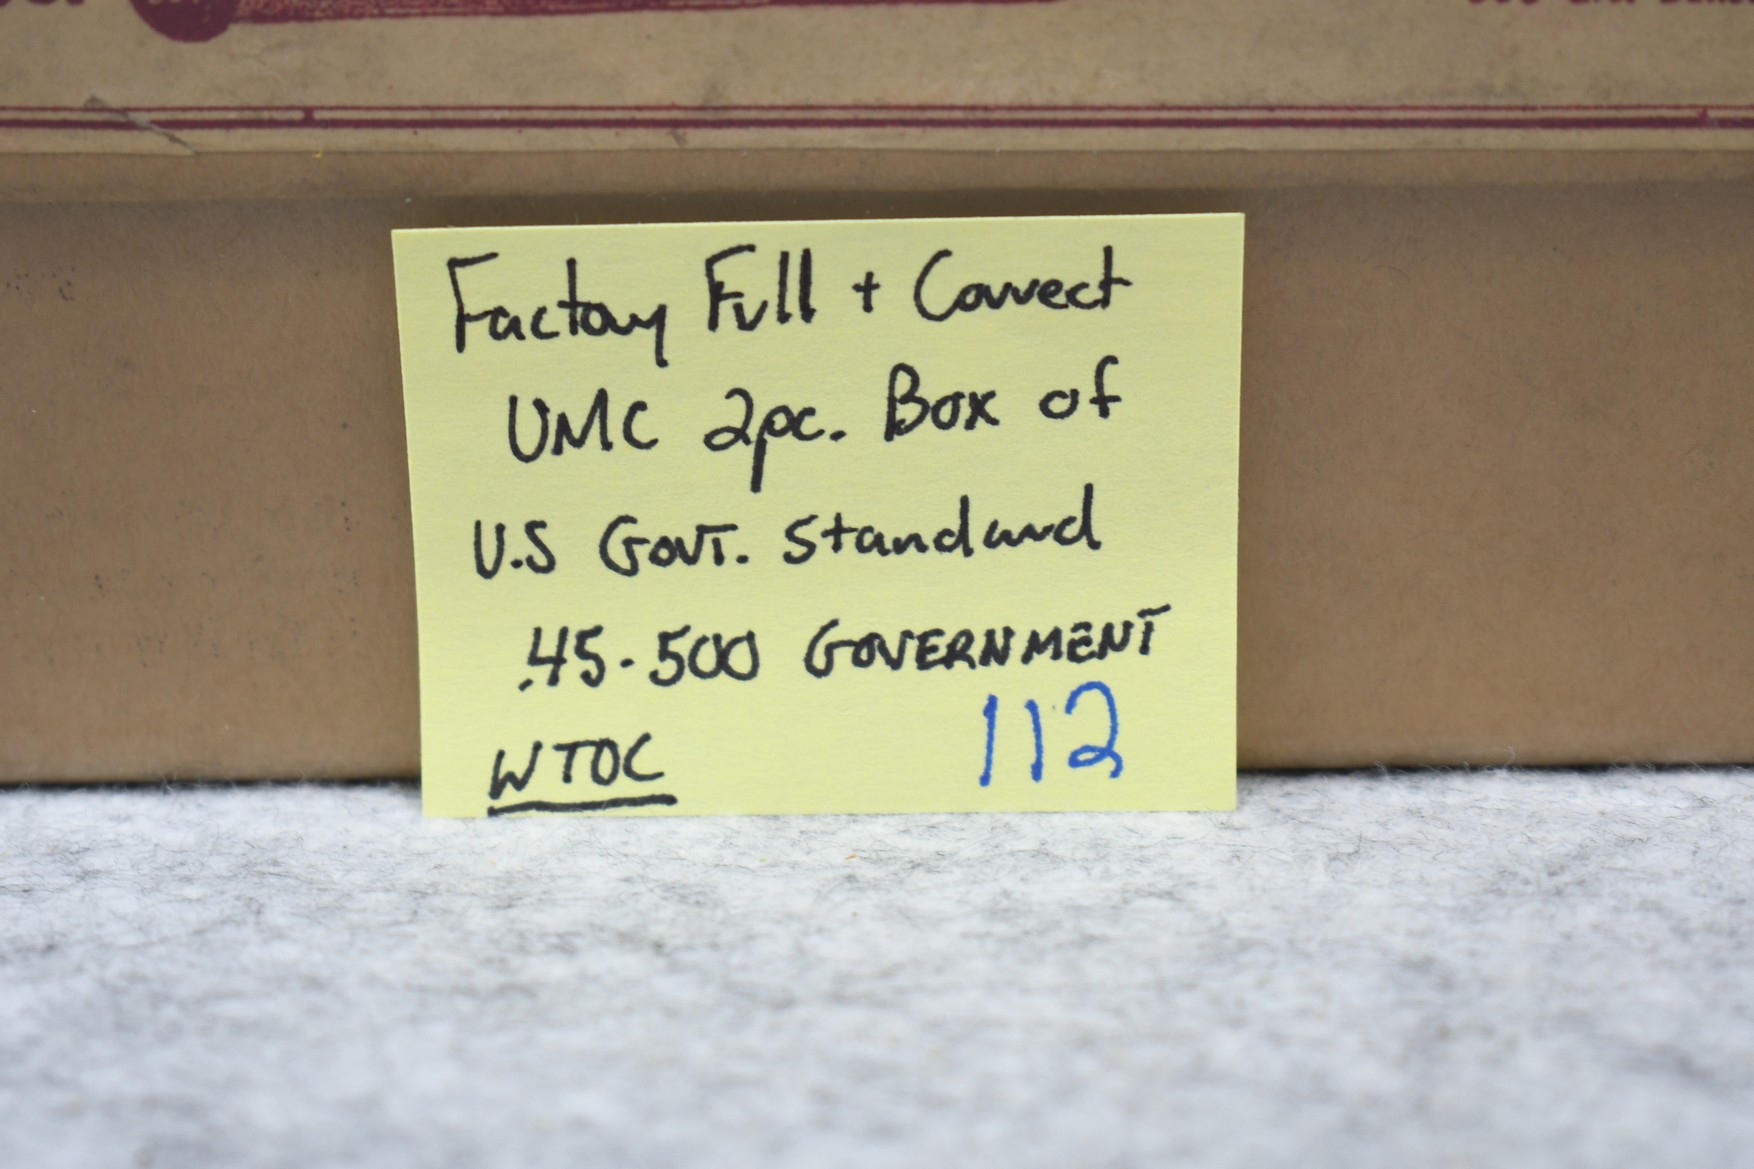 Factory Full + Correct
UMC 2pc. Box of
U.S Govt. Standard
.45-500 GOVERNMENT
WTOC 112